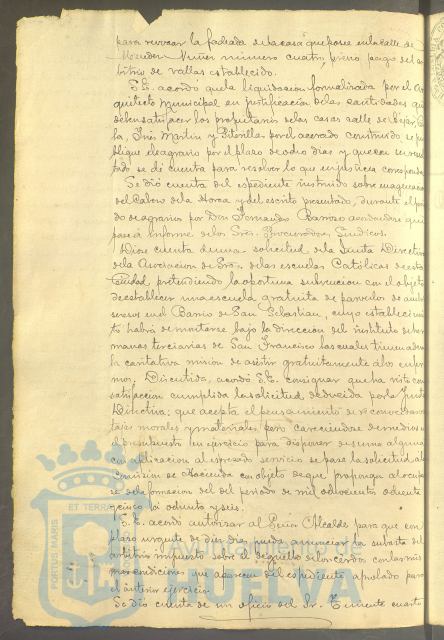 para revocar la fachada de la casa que posee en la calle de
Mendez Nuñez número cuatro, previo pago del ar-
bitrio de vallas establecido.
S.E. acordó que la liquidacion formalizada por el Ar-
quitecto Municipal en justificacion de las cantidades que
deben satisfacer los propietarios de las casas calle de Bejar Ce-
la, Inés Martin y por el acerado construido se pu-
blique el agravio por el plazo de ocho dias y que con su resul-
tado se dé cuenta para resolver lo que en justicia corresponda
Se dió cuenta del expediente instruido sobre enagenacion
del Cabezo de la Horca y del escrito presentado, durante el perio-
do de agravios por Don Fernando Barroso acordandose que
pase á informe de los Sres. Procuradores Sindicos.
Dióse cuenta de una solicitud de la Junta Directiva
de la Asociacion de Sras. de las escuelas Católicas de esta
Ciudad pretendiendo la oportuna subvencion con el objeto
de establecer una escuela gratuita de parvulos de ambos
sexos en el Barrio de San Sebastian, cuyo establecimien-
to habrá de montarse bajo la direccion del instituto de her-
manas terciarias de San Francisco las cuales tienen además
la caritativa mision de asistir gratuitamente á los enfer-
mos. Discutida, acordó S.E. consignar que ha visto con
satisfaccion cumplida la solicitud deducida por la Junta
Directiva; que acepta el pensamiento de reconocidas ven-
tajas morales y materiales, pero careciendose de medios en
el presupuesto en ejercicio para disponer de suma alguna
con aplicacion al expresado servicio se pase la solicitud á la
Comision de Hacienda con objeto de que proponga al ocupar-
se de la formacion del del periodo de mil ochocientos ochenta
y cinco á ochenta y seis.
S.E. acordó autorizar al Señor Alcalde para que con
plazo urgente de diez dias pueda anunciar la subasta del
arbitrio impuesto sobre el degüello de los cerdos con las mis-
mas condiciones que aparecen del expediente aprobado para
el anterior ejercicio.
Se dió cuenta de un oficio del Sr. Teniente cuarto
PORTUS MARIS
ET TERRÆ
HUELVA